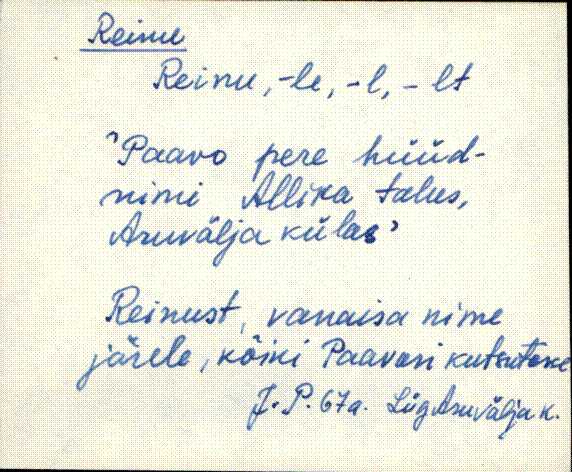 Reinu
Reinu, -le, -l, -lt
'Paavo pere hüüd-
nimi Allika talus,
Aruvälja külas'
Reinust, vanaisa nime
järele, kõiki Paavosi kutsutakse
J. P. 67a. Lüg Aruvälja k.